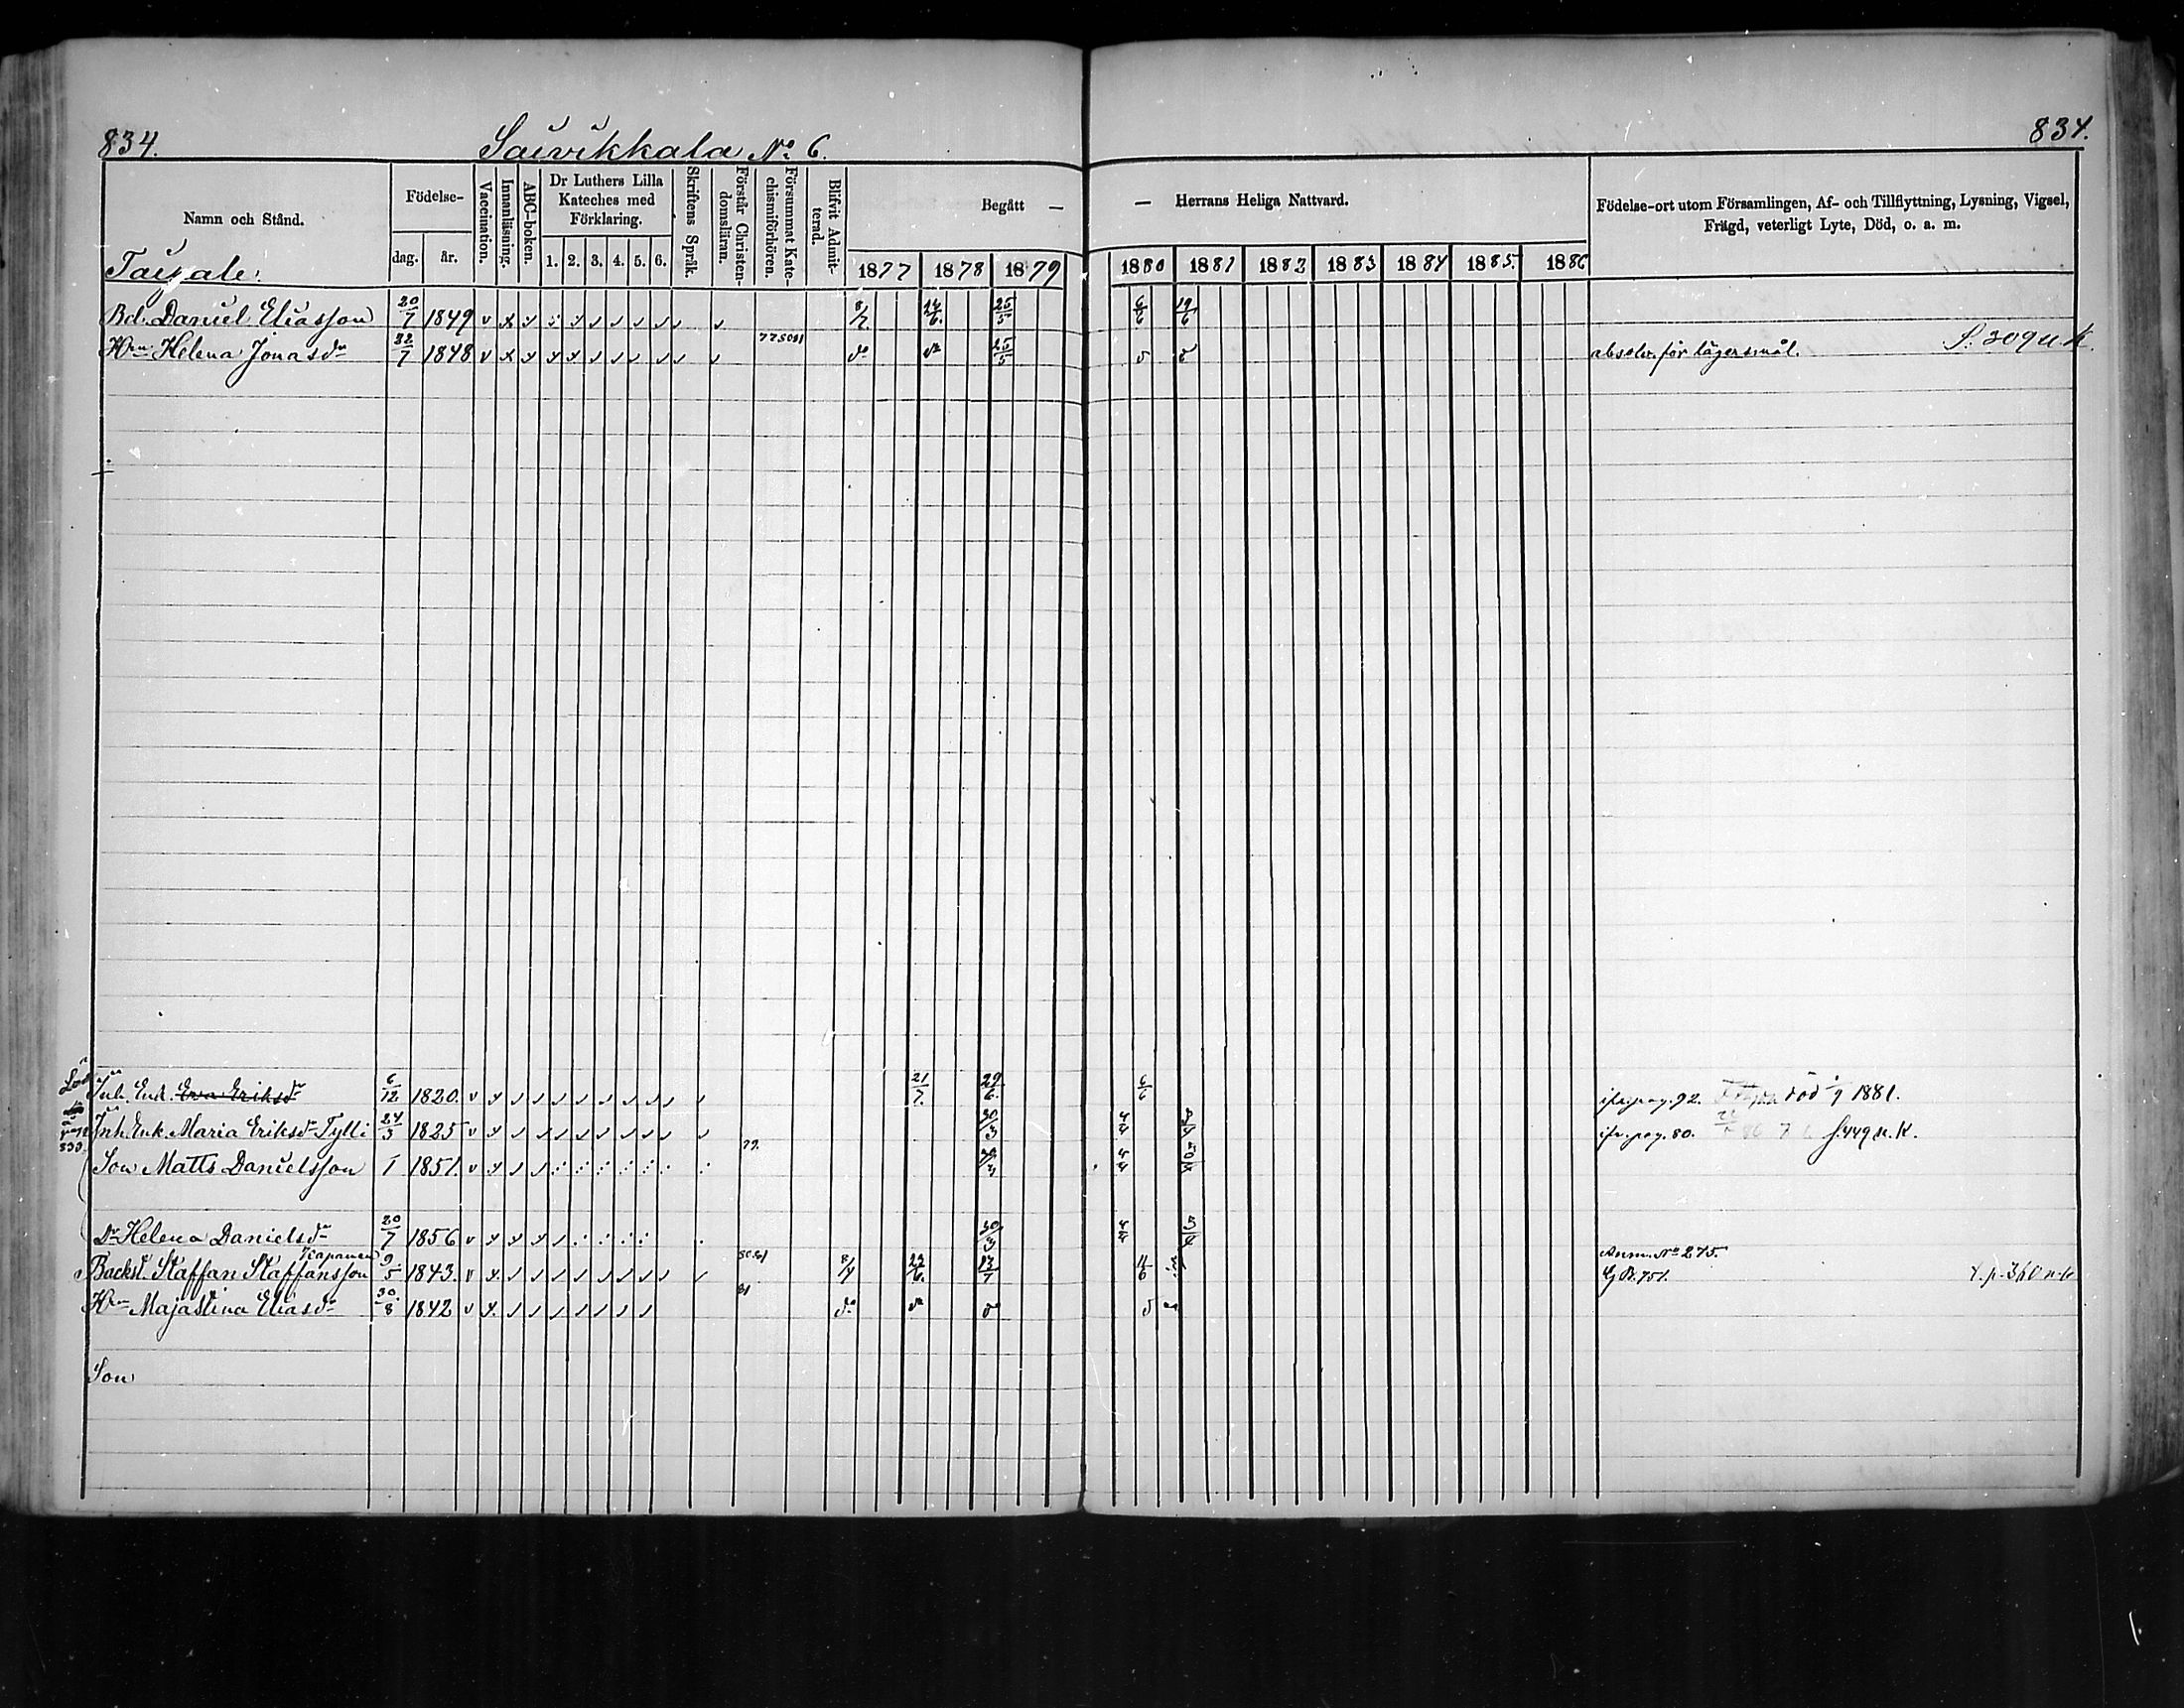 834.
Saivikkala No 6.
834.
Namn och Stånd.
Födelse-
dag.
år.
Vaccination.
Innanläsning.
ABC-boken.
Dr Luthers Lilla Kateches med Förklaring.
1. 2. 3. 4. 5. 6.
Skriftens Språk.
Förstår Christendomsläran.
Försummat Katechismiförhören.
Blifvit Admitterad.
Begått —
— Herrans Heliga Nattvard.
1877 1878 1879 1880 1881 1882 1883 1884 1885. 1886
Födelse-ort utom Församlingen, Af- och Tillflyttning, Lysning, Vigsel,
Frägd, veterligt Lyte, Död, o. a. m.
Taipale:
Bd. Daniel Eliasson 20/7 1849 v x 8/7 24/6. 25/5 6/6 19/6
Hru Helena Jonasdr 22/7 1848 v x do do 25/5 absolv. för lägersmål. S. 309 n. K.
Inh. Enk. Eva Eriksdr 6/12 1820. v 21/7. 29/6. 6/6 ifr. pag. 92. död 1881.
Inh. Enk. Maria Eriksdr Tylli 24/3 1825 v 30/3 4/4 ifr. pag. 80. S. 449 n. K.
Son Matts Danielsson 1 1851. v 79. 30/3 4/4
Dr Helena Danielsdr 20/7 1856 v 30/3 4/4
Backst. Staffan Staffansson Tiapanen 9/5 1843. v 80.81 8/7 23/6. 13/7 11/6 Anm. No 275.
Lj. B. 751.
Hru Majastina Eliasdr 30/8 1842 v 81 do do do
Son